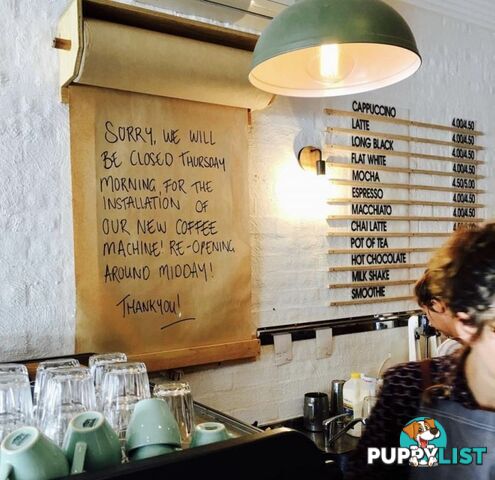 SORRY, WE WILL
BE CLOSED THURSDAY
MORNING, FOR THE
INSTALLATION OF
OUR NEW COFFEE
MACHINE! RE-OPENING
AROUND MIDDAY!
THANKYOU!
CAPPUCCINO 4.00/4.50
LATTE 4.00/4.50
LONG BLACK 4.00/4.50
FLAT WHITE 4.00/4.50
MOCHA 4.50/5.00
ESPRESSO 4.00/4.50
MACCHIATO 4.00/4.50
CHAI LATTE
POT OF TEA
HOT CHOCOLATE
MILK SHAKE
SMOOTHIE
PUPPYLIST